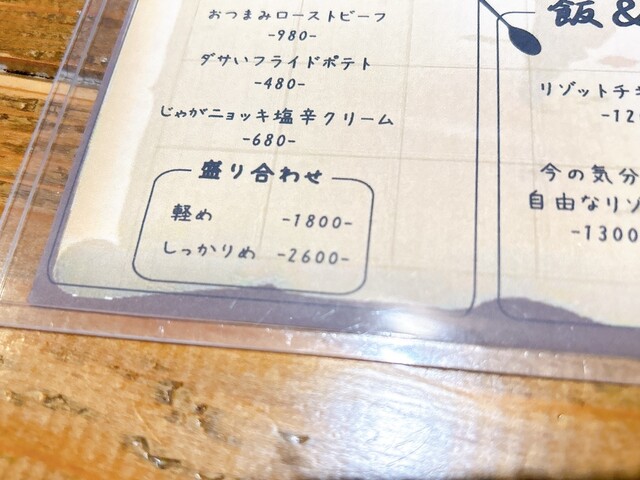 おつまみローストビーフ
-980-
ダサいフライドポテト
-480-
じゃがニョッキ塩辛クリーム
-680-
盛り合わせ
軽め -1800-
しっかりめ -2600-
飯 &
リゾットチ
-12
今の気分
自由なリゾ
-1300